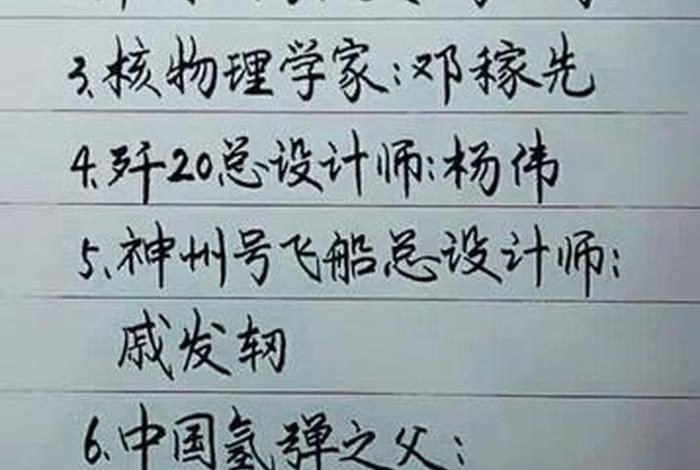 3、核物理学家:邓稼先
4、歼20总设计师:杨伟
5、神州号飞船总设计师:
戚发轫
6、中国氢弹之父: